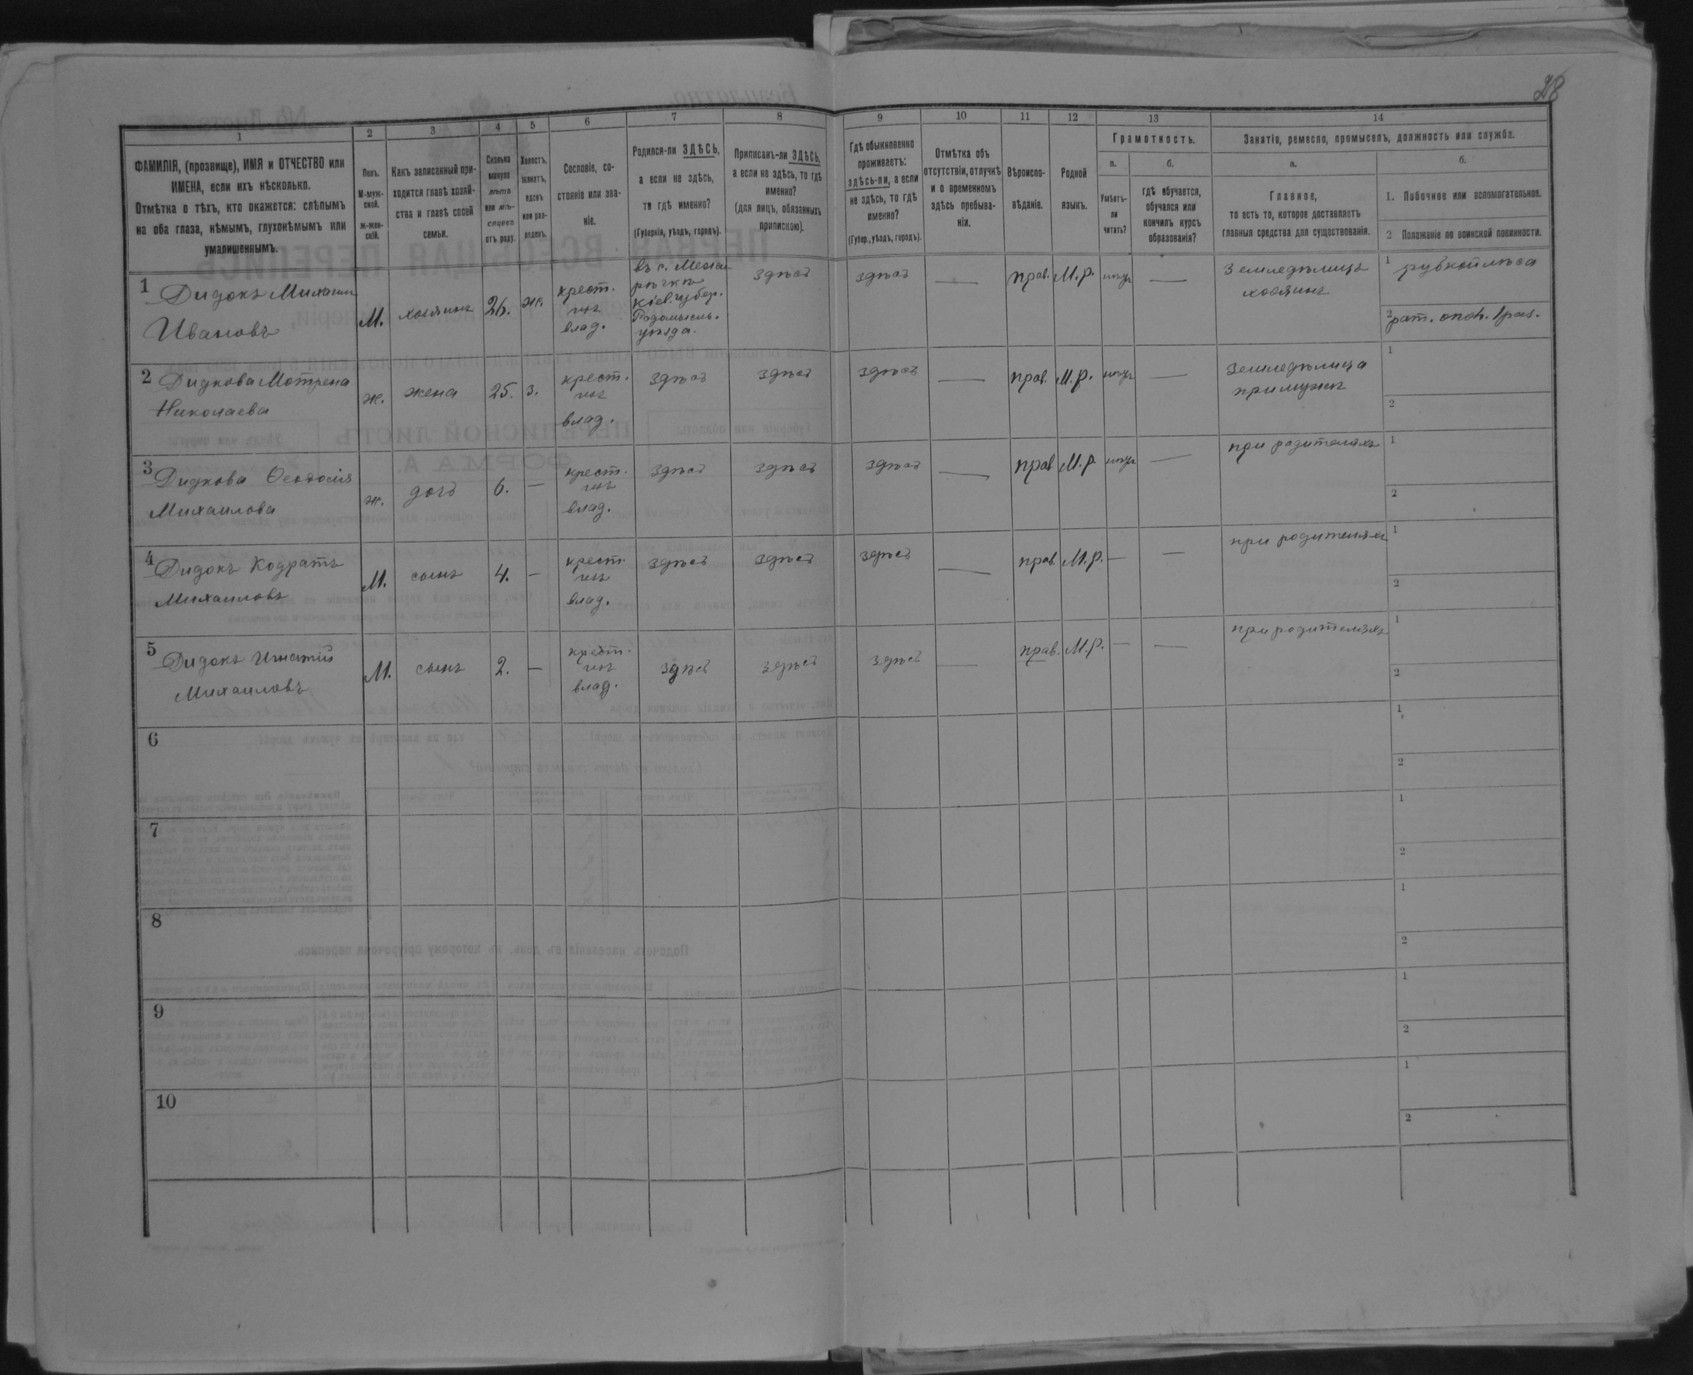 28
1
2
3
4
5
6
7
8
9
10
11
12
13
14
ФАМИЛІЯ, (прозвище), ИМЯ и ОТЧЕСТВО или
ИМЕНА, если ихъ нѣсколько.
Отмѣтка о тѣхъ, кто окажется: слѣпымъ
на оба глаза, нѣмымъ, глухонѣмымъ или
умалишеннымъ.
Полъ.
М-муж-
ской.
Ж-жен-
скій.
Какъ записанный при-
ходится главѣ хозяй-
ства и главѣ своей
семьи.
Сколько
минуло
лѣтъ
или мѣ-
сяцевъ
отъ роду.
Холостъ,
женатъ,
вдовъ
или раз-
веденъ.
Сословіе, со-
стояніе или зва-
ніе.
Родился-ли ЗДѢСЬ,
а если не здѣсь,
то гдѣ именно?
(Губернія, уѣздъ, городъ).
Приписанъ-ли ЗДѢСЬ,
а если не здѣсь, то гдѣ
именно?
(для лицъ, обязанныхъ
припискою).
Гдѣ обыкновенно
проживаетъ:
здѣсь-ли, а если
не здѣсь, то гдѣ
именно?
(Губер., уѣздъ, городъ).
Отмѣтка объ
отсутствіи, отлучкѣ
и о временномъ
здѣсь пребыва-
ніи.
Вѣроиспо-
вѣданіе.
Родной
языкъ.
Грамотность.
а.
б.
Умѣетъ-
ли
читать?
гдѣ обучается,
обучался или
кончилъ курсъ
образованія?
Занятіе, ремесло, промыселъ, должность или служба.
а.
б.
Главное,
то есть то, которое доставляетъ
главныя средства для существованія.
1. Побочное или вспомогательное.
2 Положеніе по воинской повинности.
1 Дидокъ Михаилъ
Ивановъ
М.
хозяинъ
26.
ж.
крест.
изъ
влад.
въ с.
Кіев. губер.
Радомысль.
уѣзда.
здѣсь
здѣсь
—
прав.
М.р.
—
Земледѣлецъ
хозяинъ
1 рубкой лѣса
2 рат. опол. 1 раз.
2 Дидкова Мотрена
Николаева
ж.
жена
25.
з.
крест.
изъ
влад.
здѣсь
здѣсь
здѣсь
—
прав.
М.р.
—
Земледѣлица
при мужѣ
1
2
3 Дидкова Ѳеодосія
Михаилова
ж.
дочь
6.
—
крест.
изъ
влад.
здѣсь
здѣсь
здѣсь
—
прав
М.р
—
при родителяхъ
1
2
4 Дидокъ Кодратъ
Михаиловъ
М.
сынъ
4.
—
крест.
изъ
влад.
здѣсь
здѣсь
здѣсь
—
прав.
М.р.
—
—
при родителяхъ
1
2
5 Дидокъ Игнатій
Михаиловъ
М.
сынъ
2.
—
крест.
изъ
влад.
здѣсь
здѣсь
здѣсь
—
прав.
М.р.
—
—
при родителяхъ
1
2
6
1
2
7
1
2
8
1
2
9
1
2
10
1
2